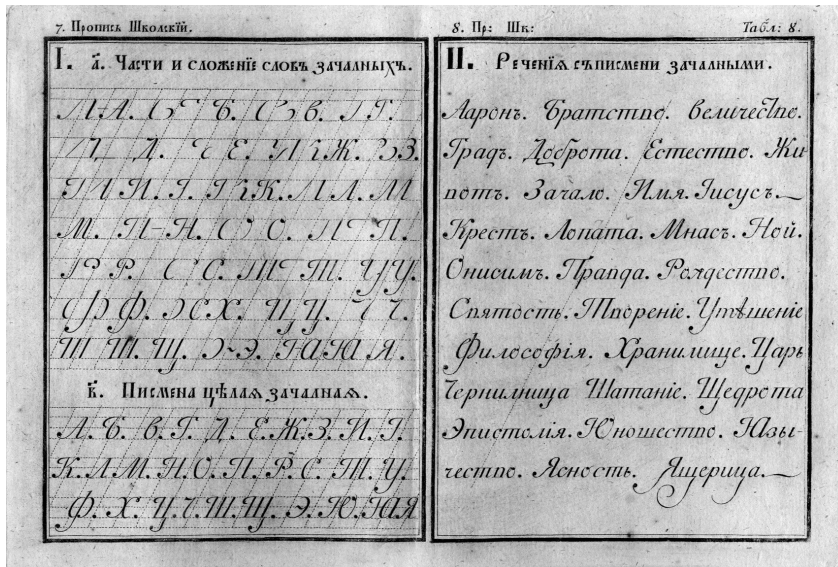 7. Пропись Школскїй.
I. а҃. Части и сложенїе словъ зачалныхъ.
А. Б. В. Г.
Д. Е. Ж. З.
И. І. К. Л. М
М. Н. О. П.
Р. С. Т. У.
Ф. Х. Ц. Ч.
Ш. Щ. Э. Ю Я.
в҃. Писмена цѣлая зачалная.
А. Б. В. Г. Д. Е. Ж. З. И. І.
К. Л. М. Н. О. П. Р. С. Т. У.
Ф. Х. Ц. Ч. Ш. Щ. Э. Ю. Ꙗ Я
8. Пр: Шк: Табл: 8.
II. Реченїя съ писмени зачалными.
Ааронъ. Братство. Величество.
Градъ. Доброта. Естество. Жи-
вотъ. Зачало. Имя. Іисусъ.
Крестъ. Лопата. Мнасъ. Ной.
Онисимъ. Правда. Рождество.
Святость. Творенїе. Утѣшенїе
Философїя. Хранилище. Царь
Чернилница Шатанїе. Щедрота
Эпистолїя. Юношество. Ꙗзы-
чество. Ясность. Ящерица.